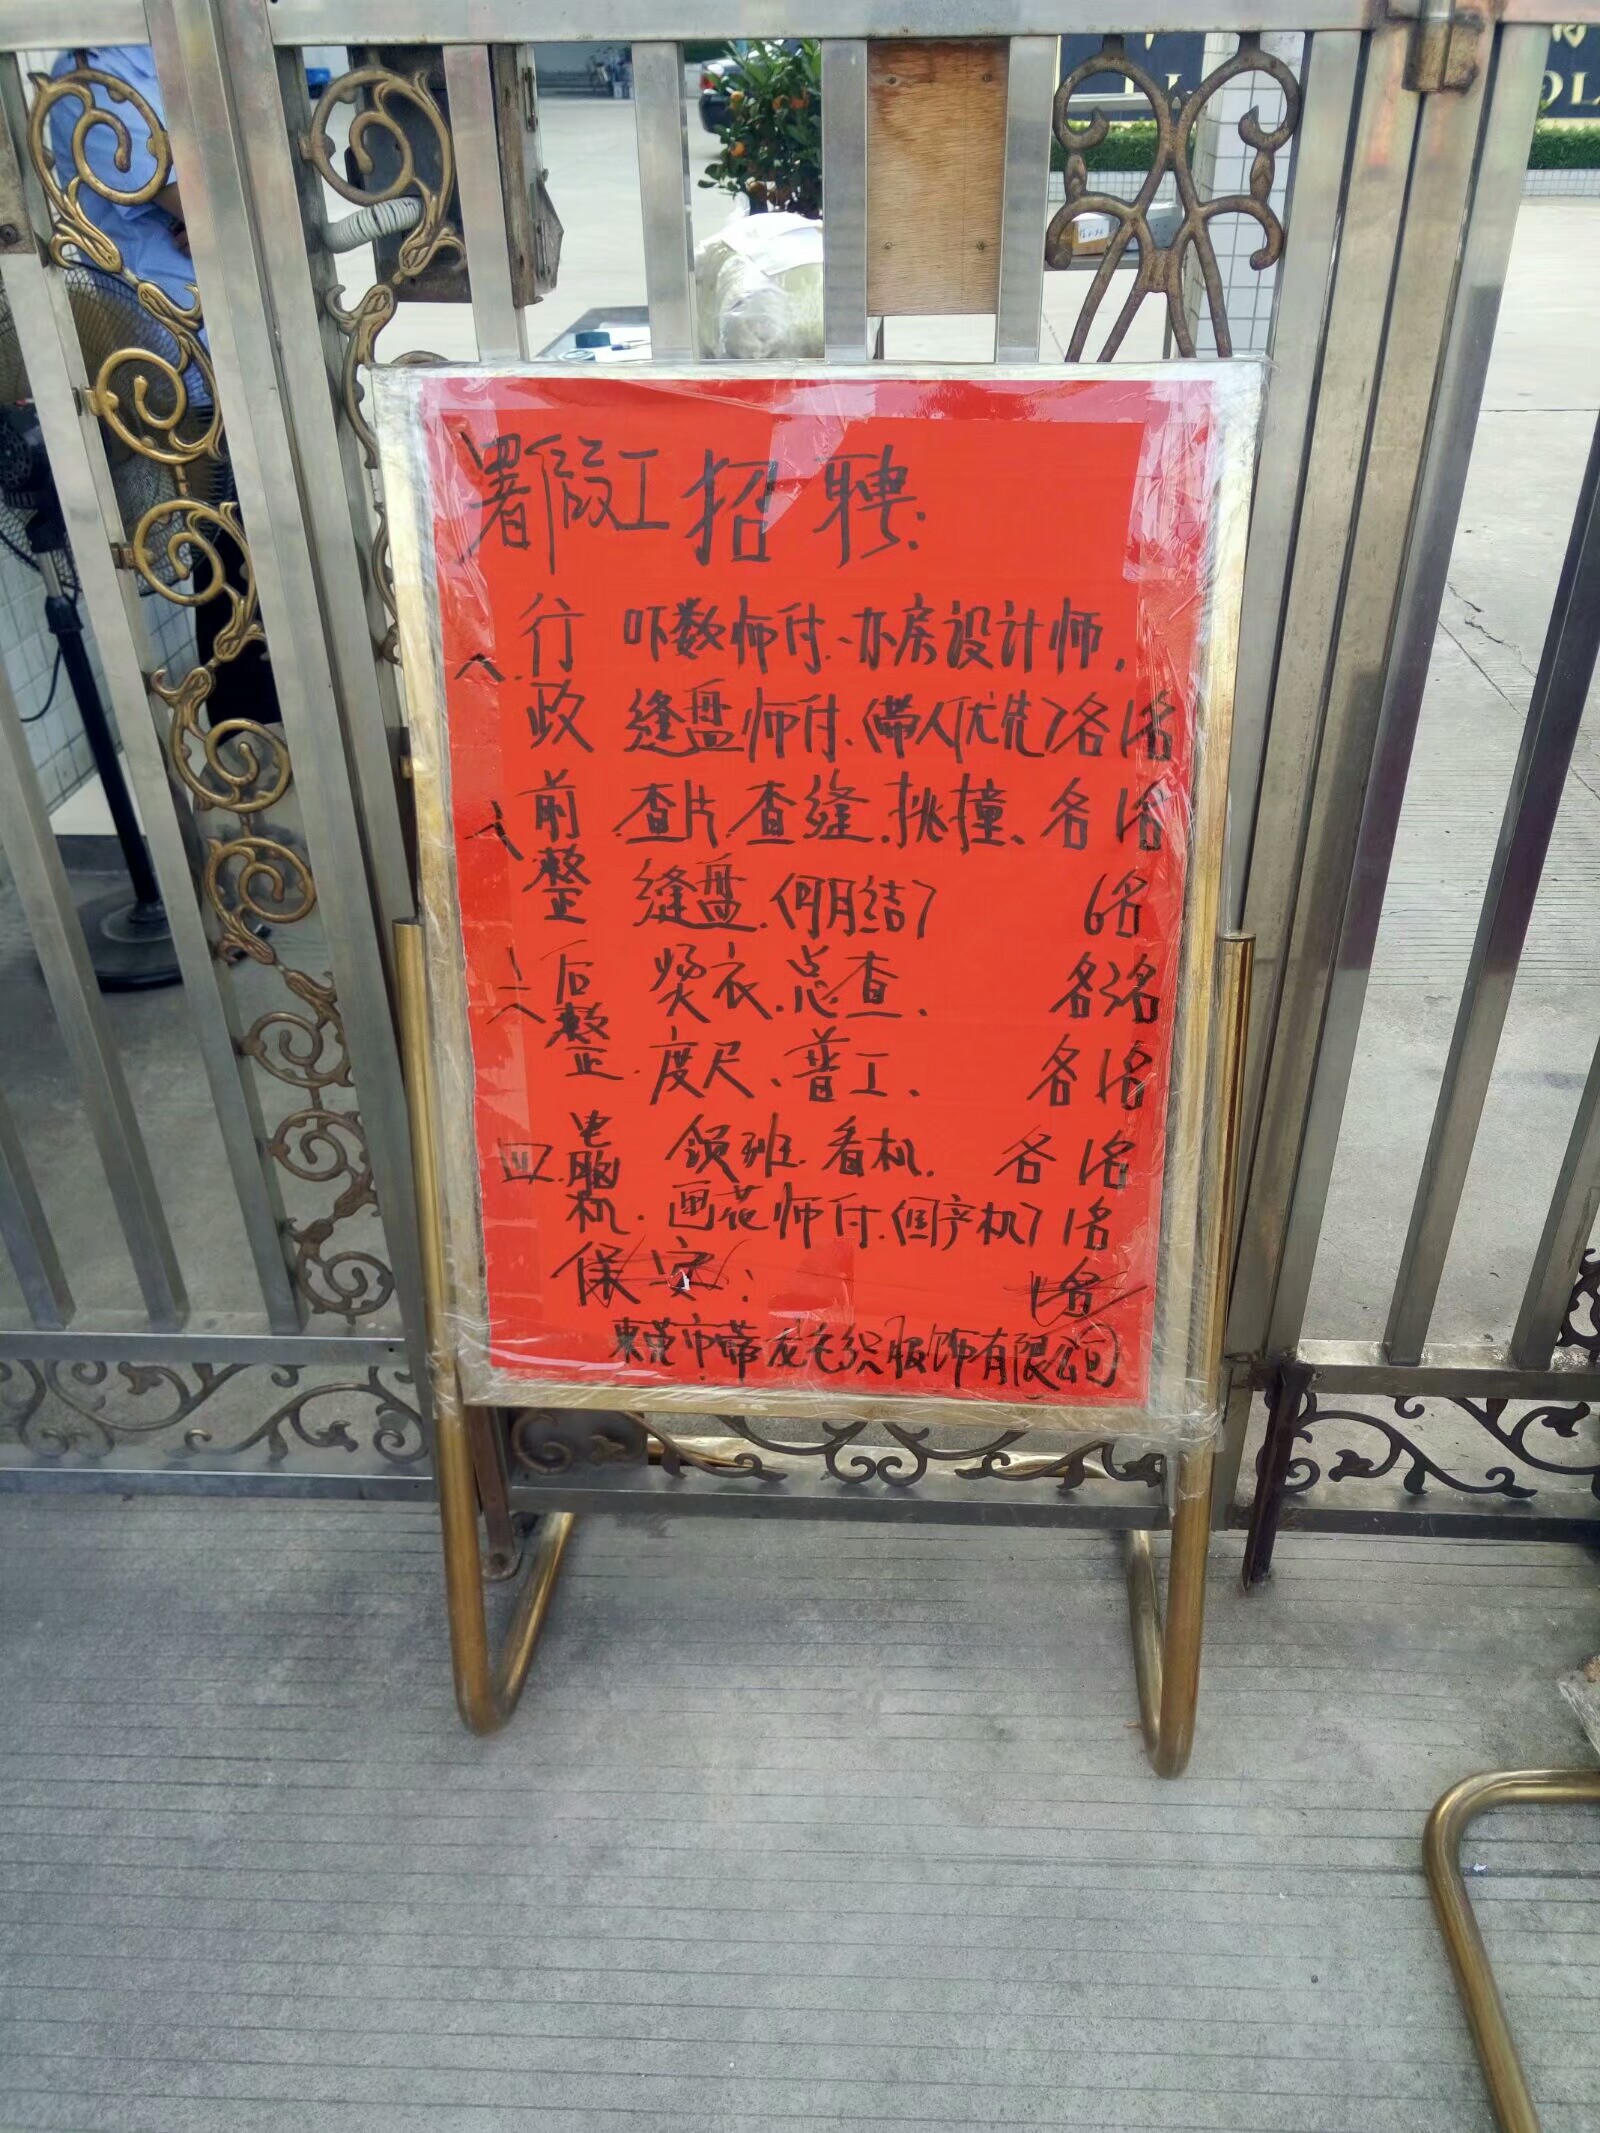 署假工招聘:
一.行政 吓数师付、办房设计师,
缝盘师付、(带人优先)各1名
二.前整 查片.查缝.挑撞、各1名
缝盘.(可月结) 6名
三.后整 烫衣.总查. 各3名
度尺、普工、 各1名
四.电脑机. 领班.看机. 各1名
画花师付.(国产机) 1名
保安: 1名
东莞市蒂龙毛织服饰有限公司
OL